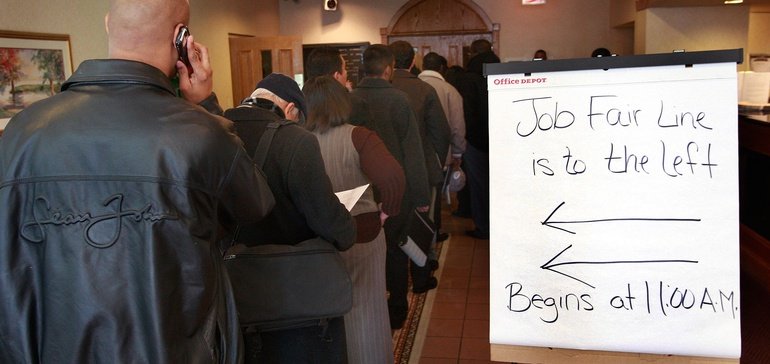 Office DEPOT
Job Fair Line
is to the left
Begins at 11:00 A.M.
Sean John